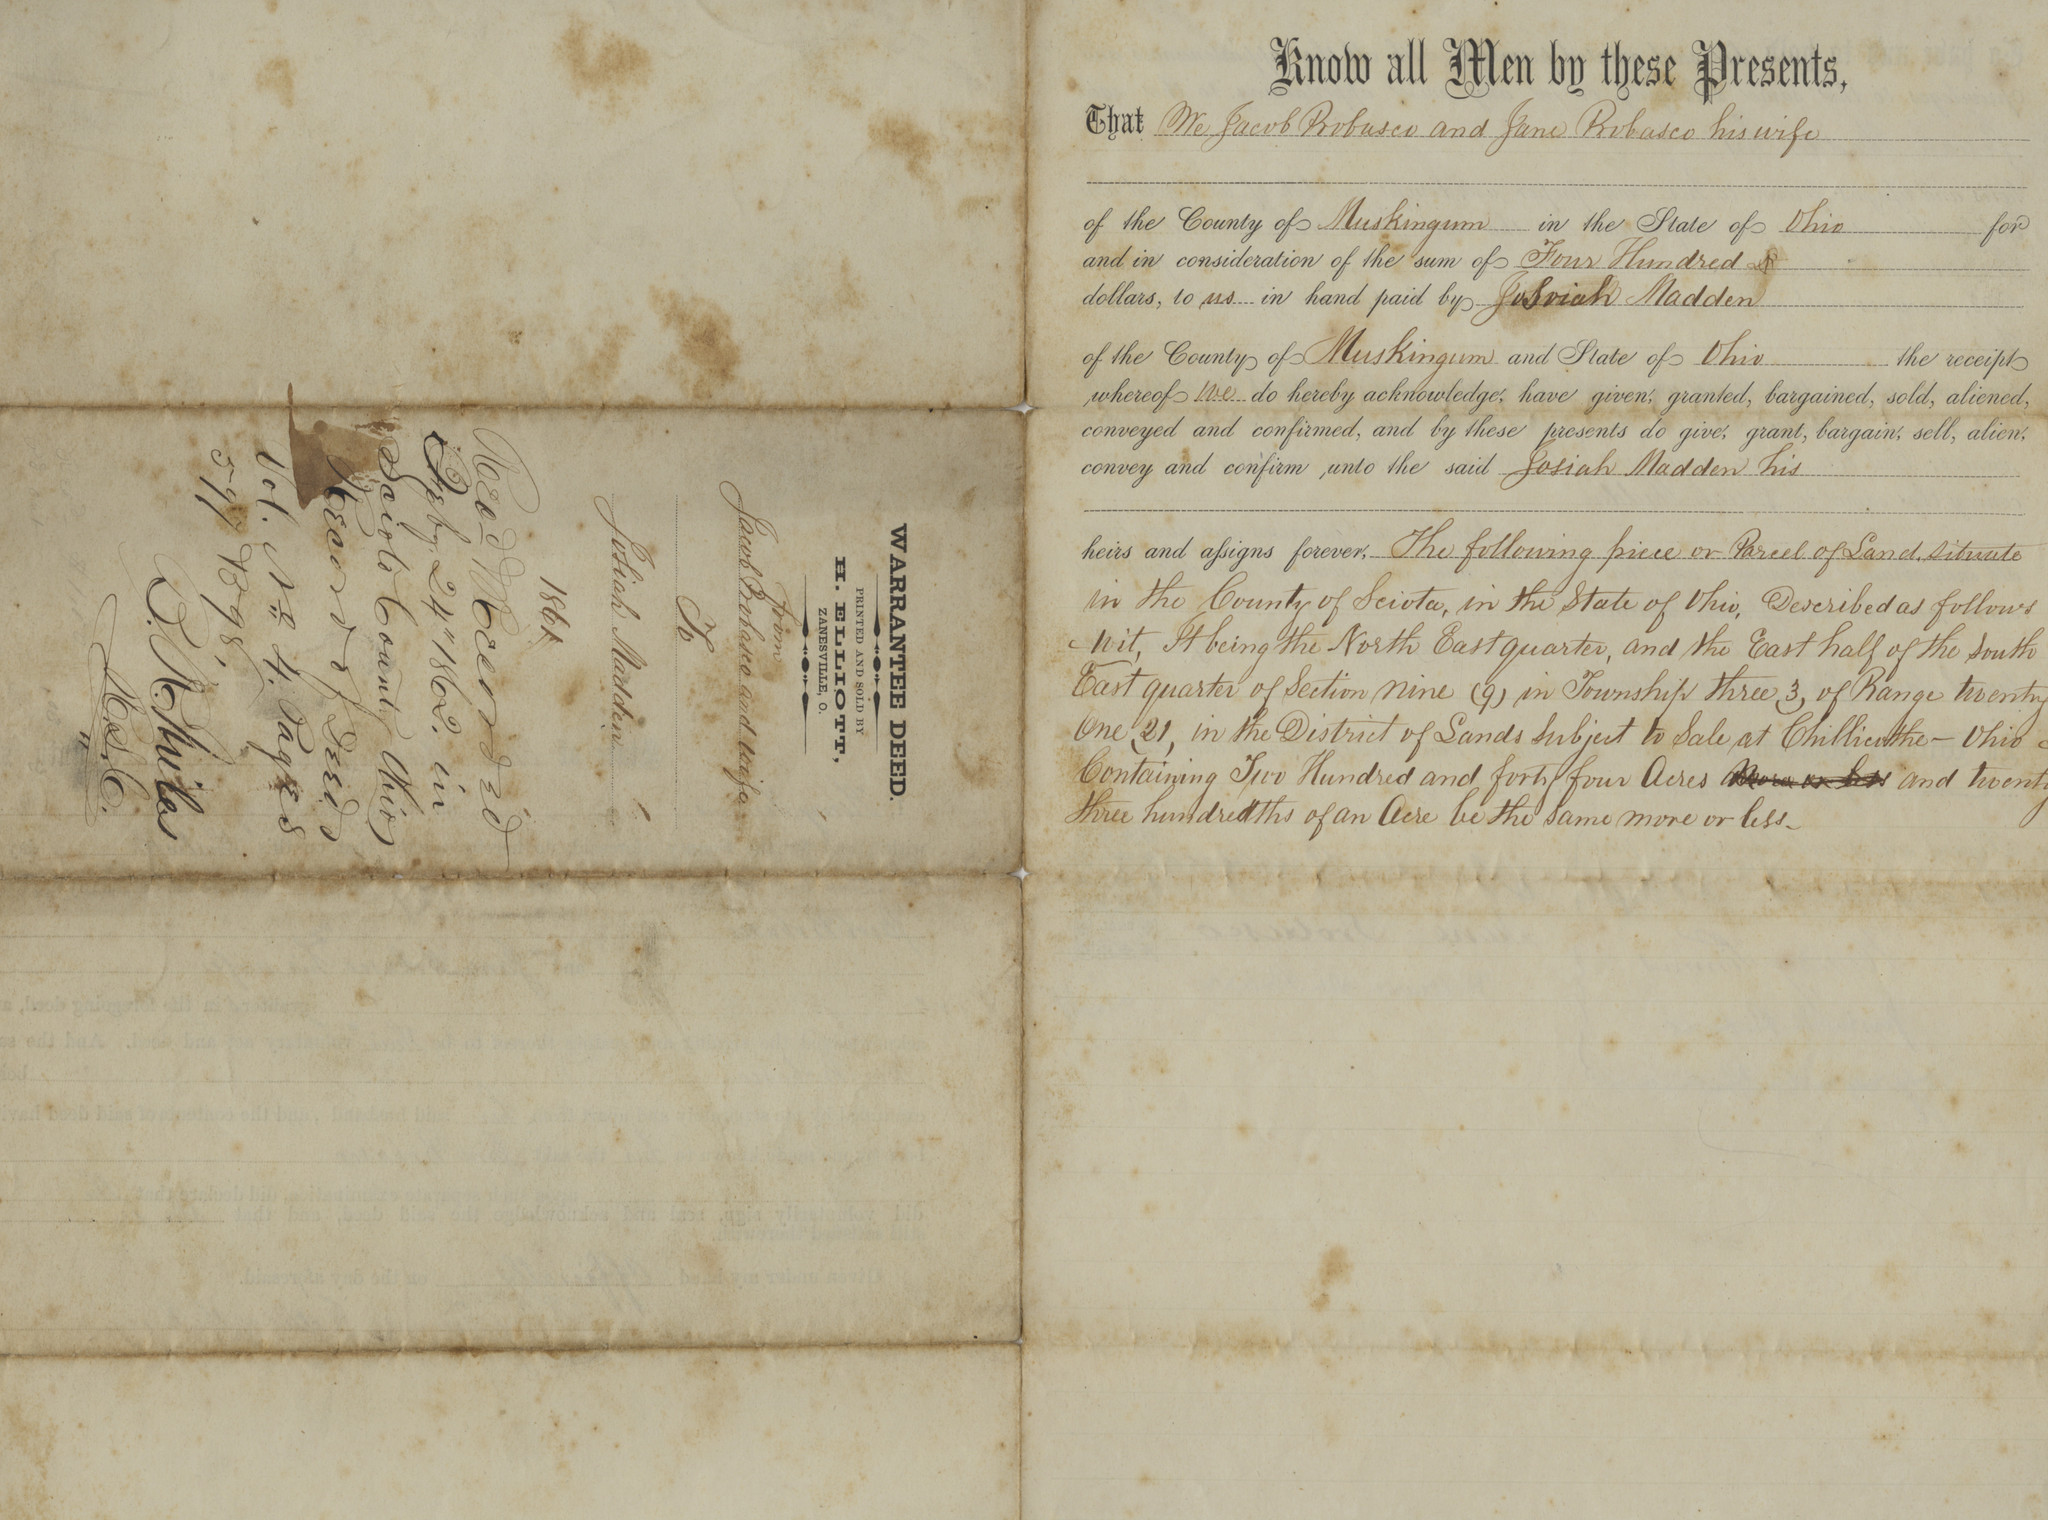 Know all Men by these Presents,
That We Jacob Probasco and Jane Probasco his wife
of the County of Muskingum in the State of Ohio for
and in consideration of the sum of Four Hundred
dollars, to us in hand paid by Josiah Madden
of the County of Muskingum and State of Ohio the receipt
whereof we do hereby acknowledge, have given, granted, bargained, sold, aliened,
conveyed and confirmed, and by these presents do give, grant, bargain, sell, alien,
convey and confirm unto the said Josiah Madden his
heirs and assigns forever, The following piece or Parcel of Land, situate
in the County of Sciota, in the State of Ohio, Described as follows
wit, It being the North East quarter, and the East half of the South
East quarter of Section nine (9) in Township three, 3, of Range twenty
One, 21, in the District of Lands subject to Sale at Chillicothe – Ohio
Containing Two Hundred and forty four Acres more or less and twenty
three hundredths of an Acre be the same more or less –
WARRANTEE DEED.
PRINTED AND SOLD BY
H. ELLIOTT,
ZANESVILLE, O.
from
Jacob Probasco and wife
To
Josiah Madden
1861
Recd & Recorded
Feby. 24" 1862. in
Scioto County Ohio
Record of Deeds
Vol. No 4. Pages
&98,
O. Miles
R.S.C.